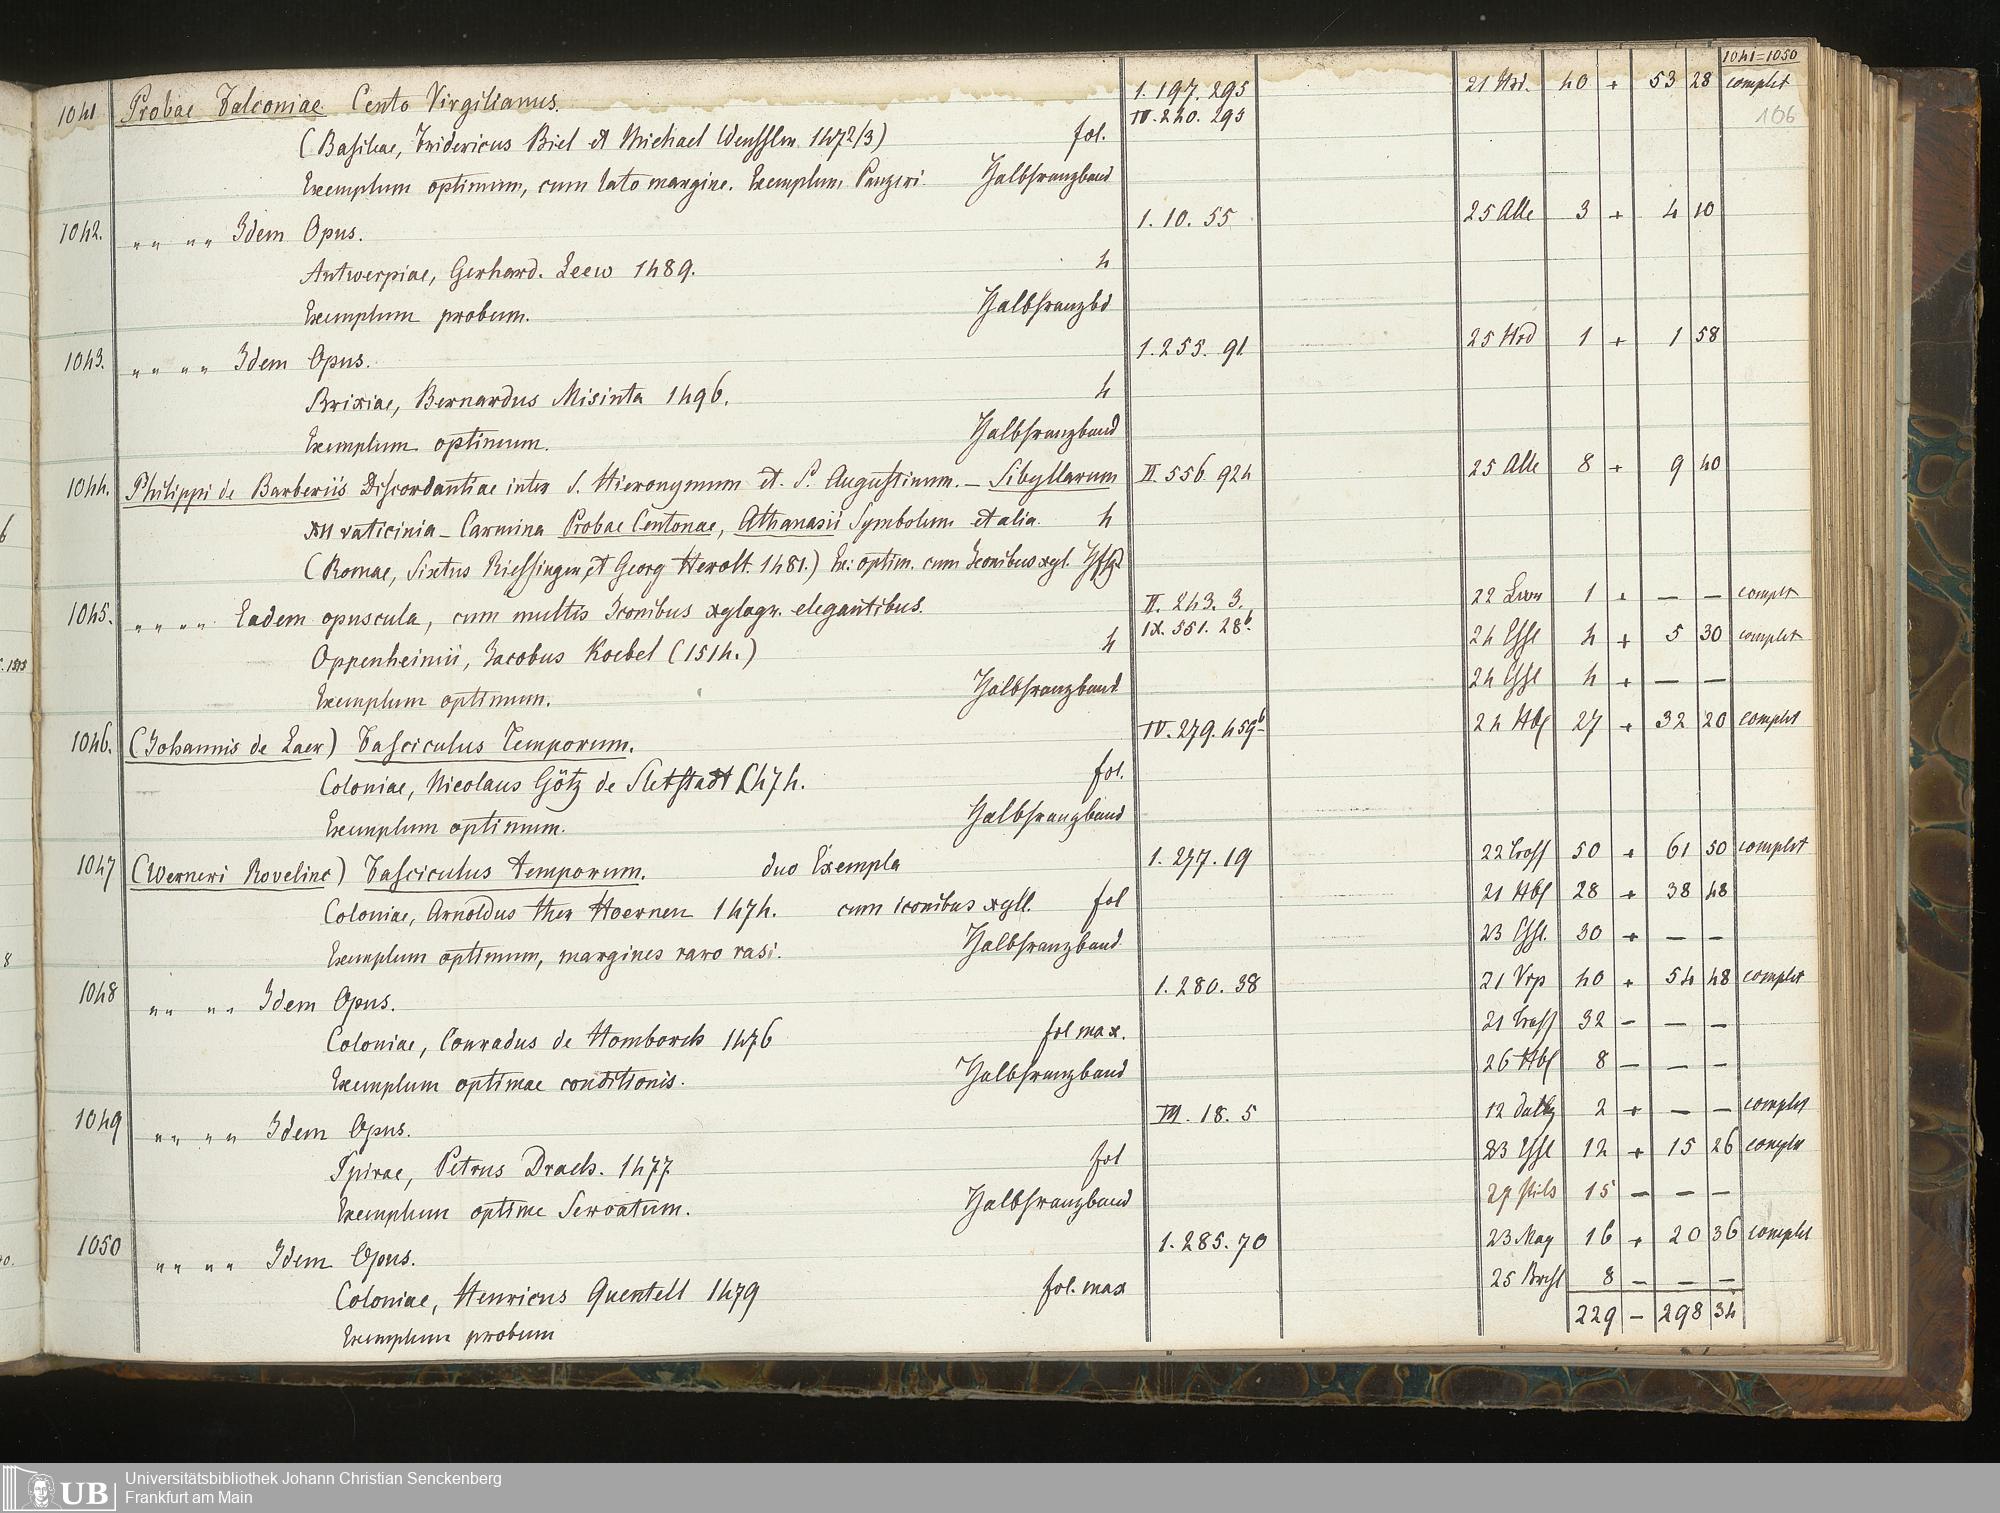 1041=1050
106
1041 Probae Falconiae Cento Virgilianus. 1. 197. 295 21 Hrd. 40 + 53 28 complet
IV. 240. 295
(Basileae, Fridericus Biel et Michael Wenssler 1472/3) fol.
Exemplum optimum, cum lato margine. Exemplum Panzeri Halbfranzband
1042. " " " " Idem Opus. 1. 10. 55 25 Alle 3 + 4 10
Antwerpiae, Gerhard. Leew 1489. 4
Exemplum probum. Halbfranzbd
1043. " " " " Idem Opus. 1. 255. 91 25 Hrd 1 + 1 58
Brixiae, Bernardus Misinta 1496. 4
Exemplum optimum. Halbfranzband
1044. Philippi de Barberiis Discordantiae inter S. Hieronymum et S. Augustinum. – Sibyllarum II. 556. 924 25 Alle 8 + 9 40
XII vaticinia – Carmina Probae Centonae, Athanasii Symbolum et alia. 4
(Romae, Sixtus Riessinger, et Georg Herolt. 1481.) Ex: optim. cum Iconibus xyl.
1045. " " " " Eadem opuscula, cum multis Iconibus xylogr. elegantibus. II. 243. 3. 22 1 + — — complet
IX. 551. 28b. 24 4 + 5 30 complet
Oppenheimii, Jacobus Koebel (1514.) 4
24 4 + — —
Exemplum optimum. Halbfranzband
1046. (Johannis de Laer) Fasciculus Temporum. IV. 279. 459b 24 Hbf 27 + 32 20 complet
Coloniae, Nicolaus Götz de Sletstadt 1474. fol.
Exemplum optimum. Halbfranzband
1047 (Werneri Rovelinc) Fasciculus temporum. duo Exempla 1. 277. 19 22 50 + 61 50 complet
21 Hbf 28 + 38 48
Coloniae, Arnoldus ther Hoernen 1474. cum iconibus xyll. fol
23 30 + — —
Exemplum optimum, margines raro rasi. Halbfranzband
1048 " " " " Idem Opus. 1. 280. 38 21 Vrp 40 + 54 48 complet
21 32 — — —
Coloniae, Conradus de Homborch 1476 fol max.
26 Hbf 8 — — —
Exemplum optimae conditionis. Halbfranzband
1049 " " " " Idem Opus. III. 18. 5 12 2 + — — complet
23 12 + 15 26 complet
Spirae, Petrus Drach. 1477 fol
27 15 — — —
Exemplum optime Servatum. Halbfranzband
1050 " " " " Idem Opus. 1. 285. 70 23 May 16 + 20 36 complet
25 8 — — —
Coloniae, Henricus Quentell 1479 fol. max
229 — 298 34
Exemplum probum
UB
Universitätsbibliothek Johann Christian Senckenberg
Frankfurt am Main